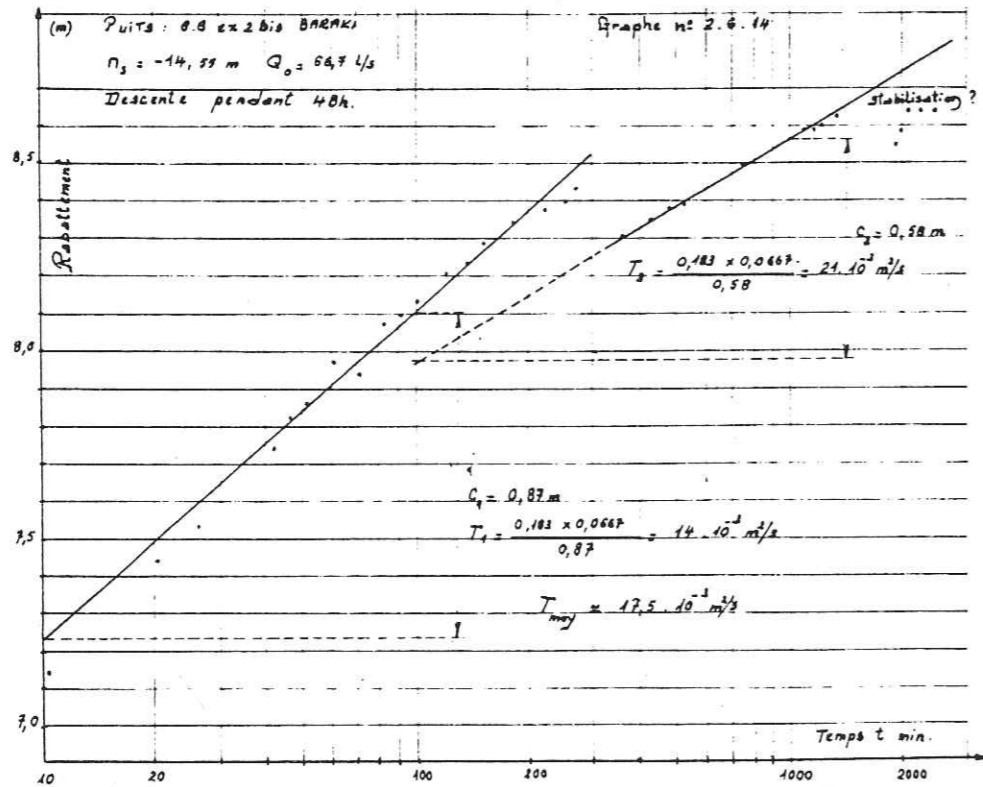 (m) Puits : B.B ex 2 bis BARAKI
Graphe n° 2.6.14
n_s = -14,55 m Q_o = 66,7 l/s
Descente pendant 48h.
stabilisation ?
Rabattement
8,5
C_2 = 0,58 m
T_2 = 0,183 x 0,0667 / 0,58 = 21.10^-3 m²/s
8,0
C_1 = 0,87 m
T_1 = 0,183 x 0,0667 / 0,87 = 14.10^-3 m²/s
7,5
T_moy = 17,5.10^-3 m²/s
7,0
Temps t min.
10 20 100 200 1000 2000